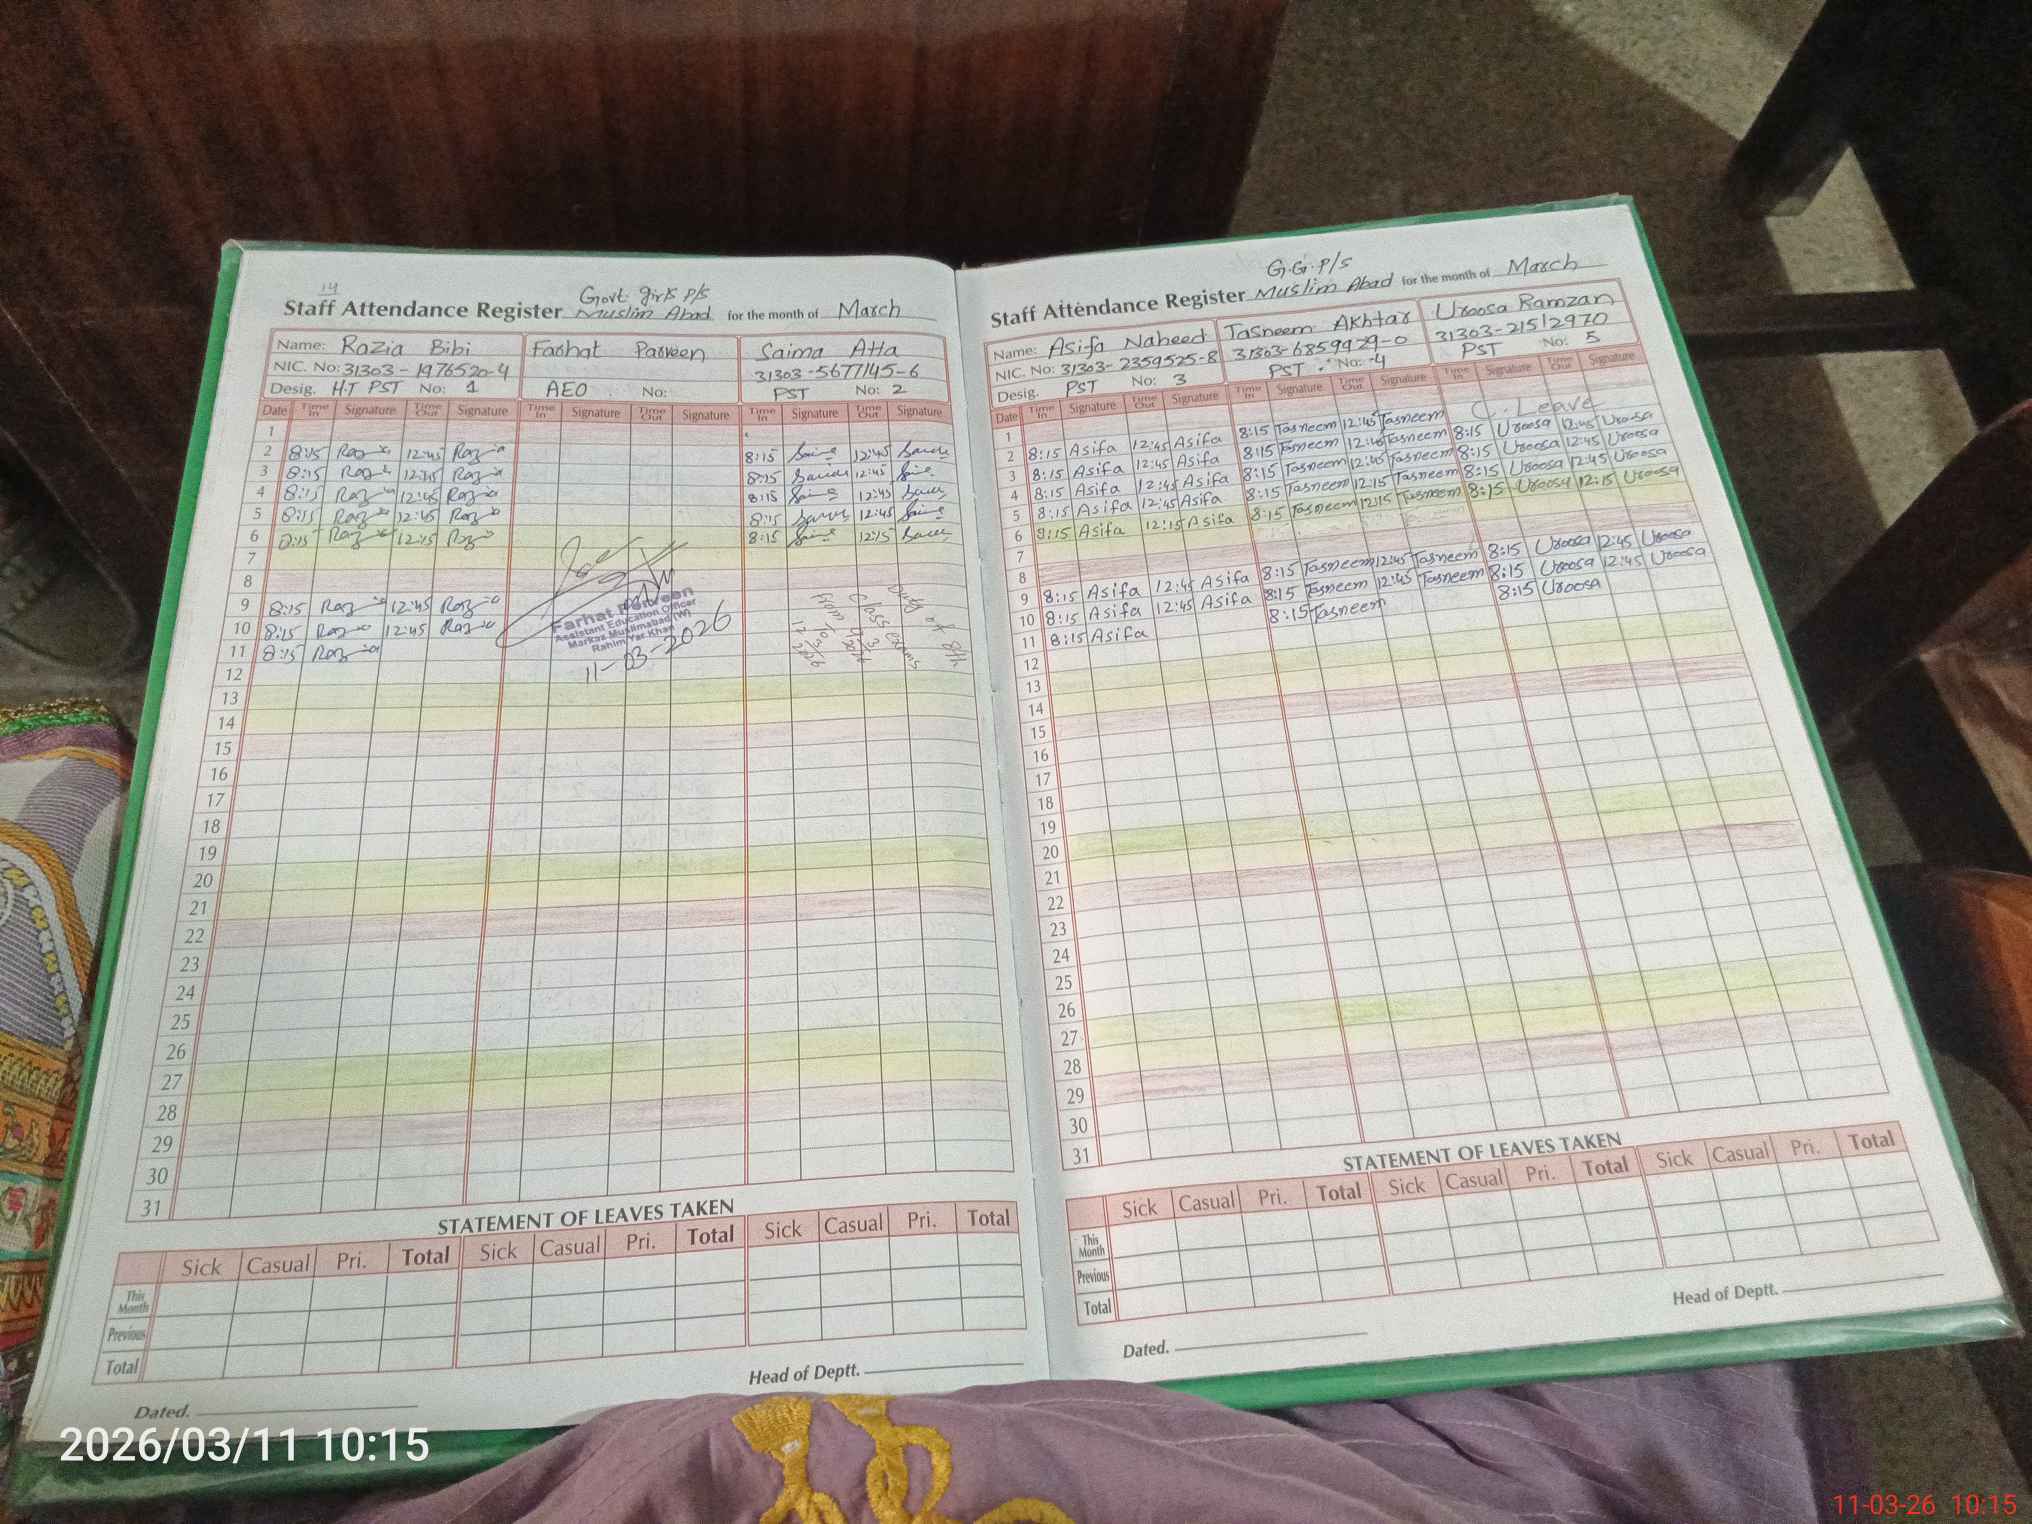 14
Govt. girls P/S
Staff Attendance Register Muslim Abad for the month of March
Name: Razia Bibi
NIC. No: 31303-1976520-4
Desig. H.T PST No: 1
Farhat Parveen
AEO No:
Saima Atta
31303-5677145-6
PST No: 2
Date Time In Signature Time Out Signature Time In Signature Time Out Signature Time In Signature Time Out Signature
1
2 8:15 Razia 12:45 Razia 8:15 Saima 12:45 Saima
3 8:15 Razia 12:45 Razia 8:15 Saima 12:45 Saima
4 8:15 Razia 12:45 Razia 8:15 Saima 12:45 Saima
5 8:15 Razia 12:45 Razia 8:15 Saima 12:45 Saima
6 8:15 Razia 12:15 Razia 8:15 Saima 12:15 Saima
7
8
9 8:15 Razia 12:45 Razia
10 8:15 Razia 12:45 Razia
11 8:15 Razia
Farhat Parveen
Assistant Education Officer
Markaz Muslimabad (W)
Rahim Yar Khan
11-03-2026
Duty of 8th
Class exams
From 9/3/2026
12
13
14
15
16
17
18
19
20
21
22
23
24
25
26
27
28
29
30
31
STATEMENT OF LEAVES TAKEN
Sick Casual Pri. Total Sick Casual Pri. Total Sick Casual Pri. Total
This Month
Previous
Total
Dated.
Head of Deptt.
G.G.P/S
Staff Attendance Register Muslim Abad for the month of March
Name: Asifa Naheed
NIC. No: 31303-2359525-8
Desig. PST No: 3
Tasneem Akhtar
31303-6859929-0
PST No: 4
Uroosa Ramzan
31303-21512970
PST No: 5
Date Time In Signature Time Out Signature Time In Signature Time Out Signature Time In Signature Time Out Signature
1
2 8:15 Asifa 12:45 Asifa 8:15 Tasneem 12:45 Tasneem C. Leave
3 8:15 Asifa 12:45 Asifa 8:15 Tasneem 12:45 Tasneem 8:15 Uroosa 12:45 Uroosa
4 8:15 Asifa 12:45 Asifa 8:15 Tasneem 12:45 Tasneem 8:15 Uroosa 12:45 Uroosa
5 8:15 Asifa 12:45 Asifa 8:15 Tasneem 12:15 Tasneem 8:15 Uroosa 12:45 Uroosa
6 8:15 Asifa 12:15 Asifa 8:15 Tasneem 12:15 Tasneem 8:15 Uroosa 12:15 Uroosa
7
8
9 8:15 Asifa 12:45 Asifa 8:15 Tasneem 12:45 Tasneem 8:15 Uroosa 12:45 Uroosa
10 8:15 Asifa 12:45 Asifa 8:15 Tasneem 12:45 Tasneem 8:15 Uroosa 12:45 Uroosa
11 8:15 Asifa 8:15 Tasneem 8:15 Uroosa
12
13
14
15
16
17
18
19
20
21
22
23
24
25
26
27
28
29
30
31
STATEMENT OF LEAVES TAKEN
Sick Casual Pri. Total Sick Casual Pri. Total Sick Casual Pri. Total
This Month
Previous
Total
Dated.
Head of Deptt.
2026/03/11 10:15
11-03-26 10:15